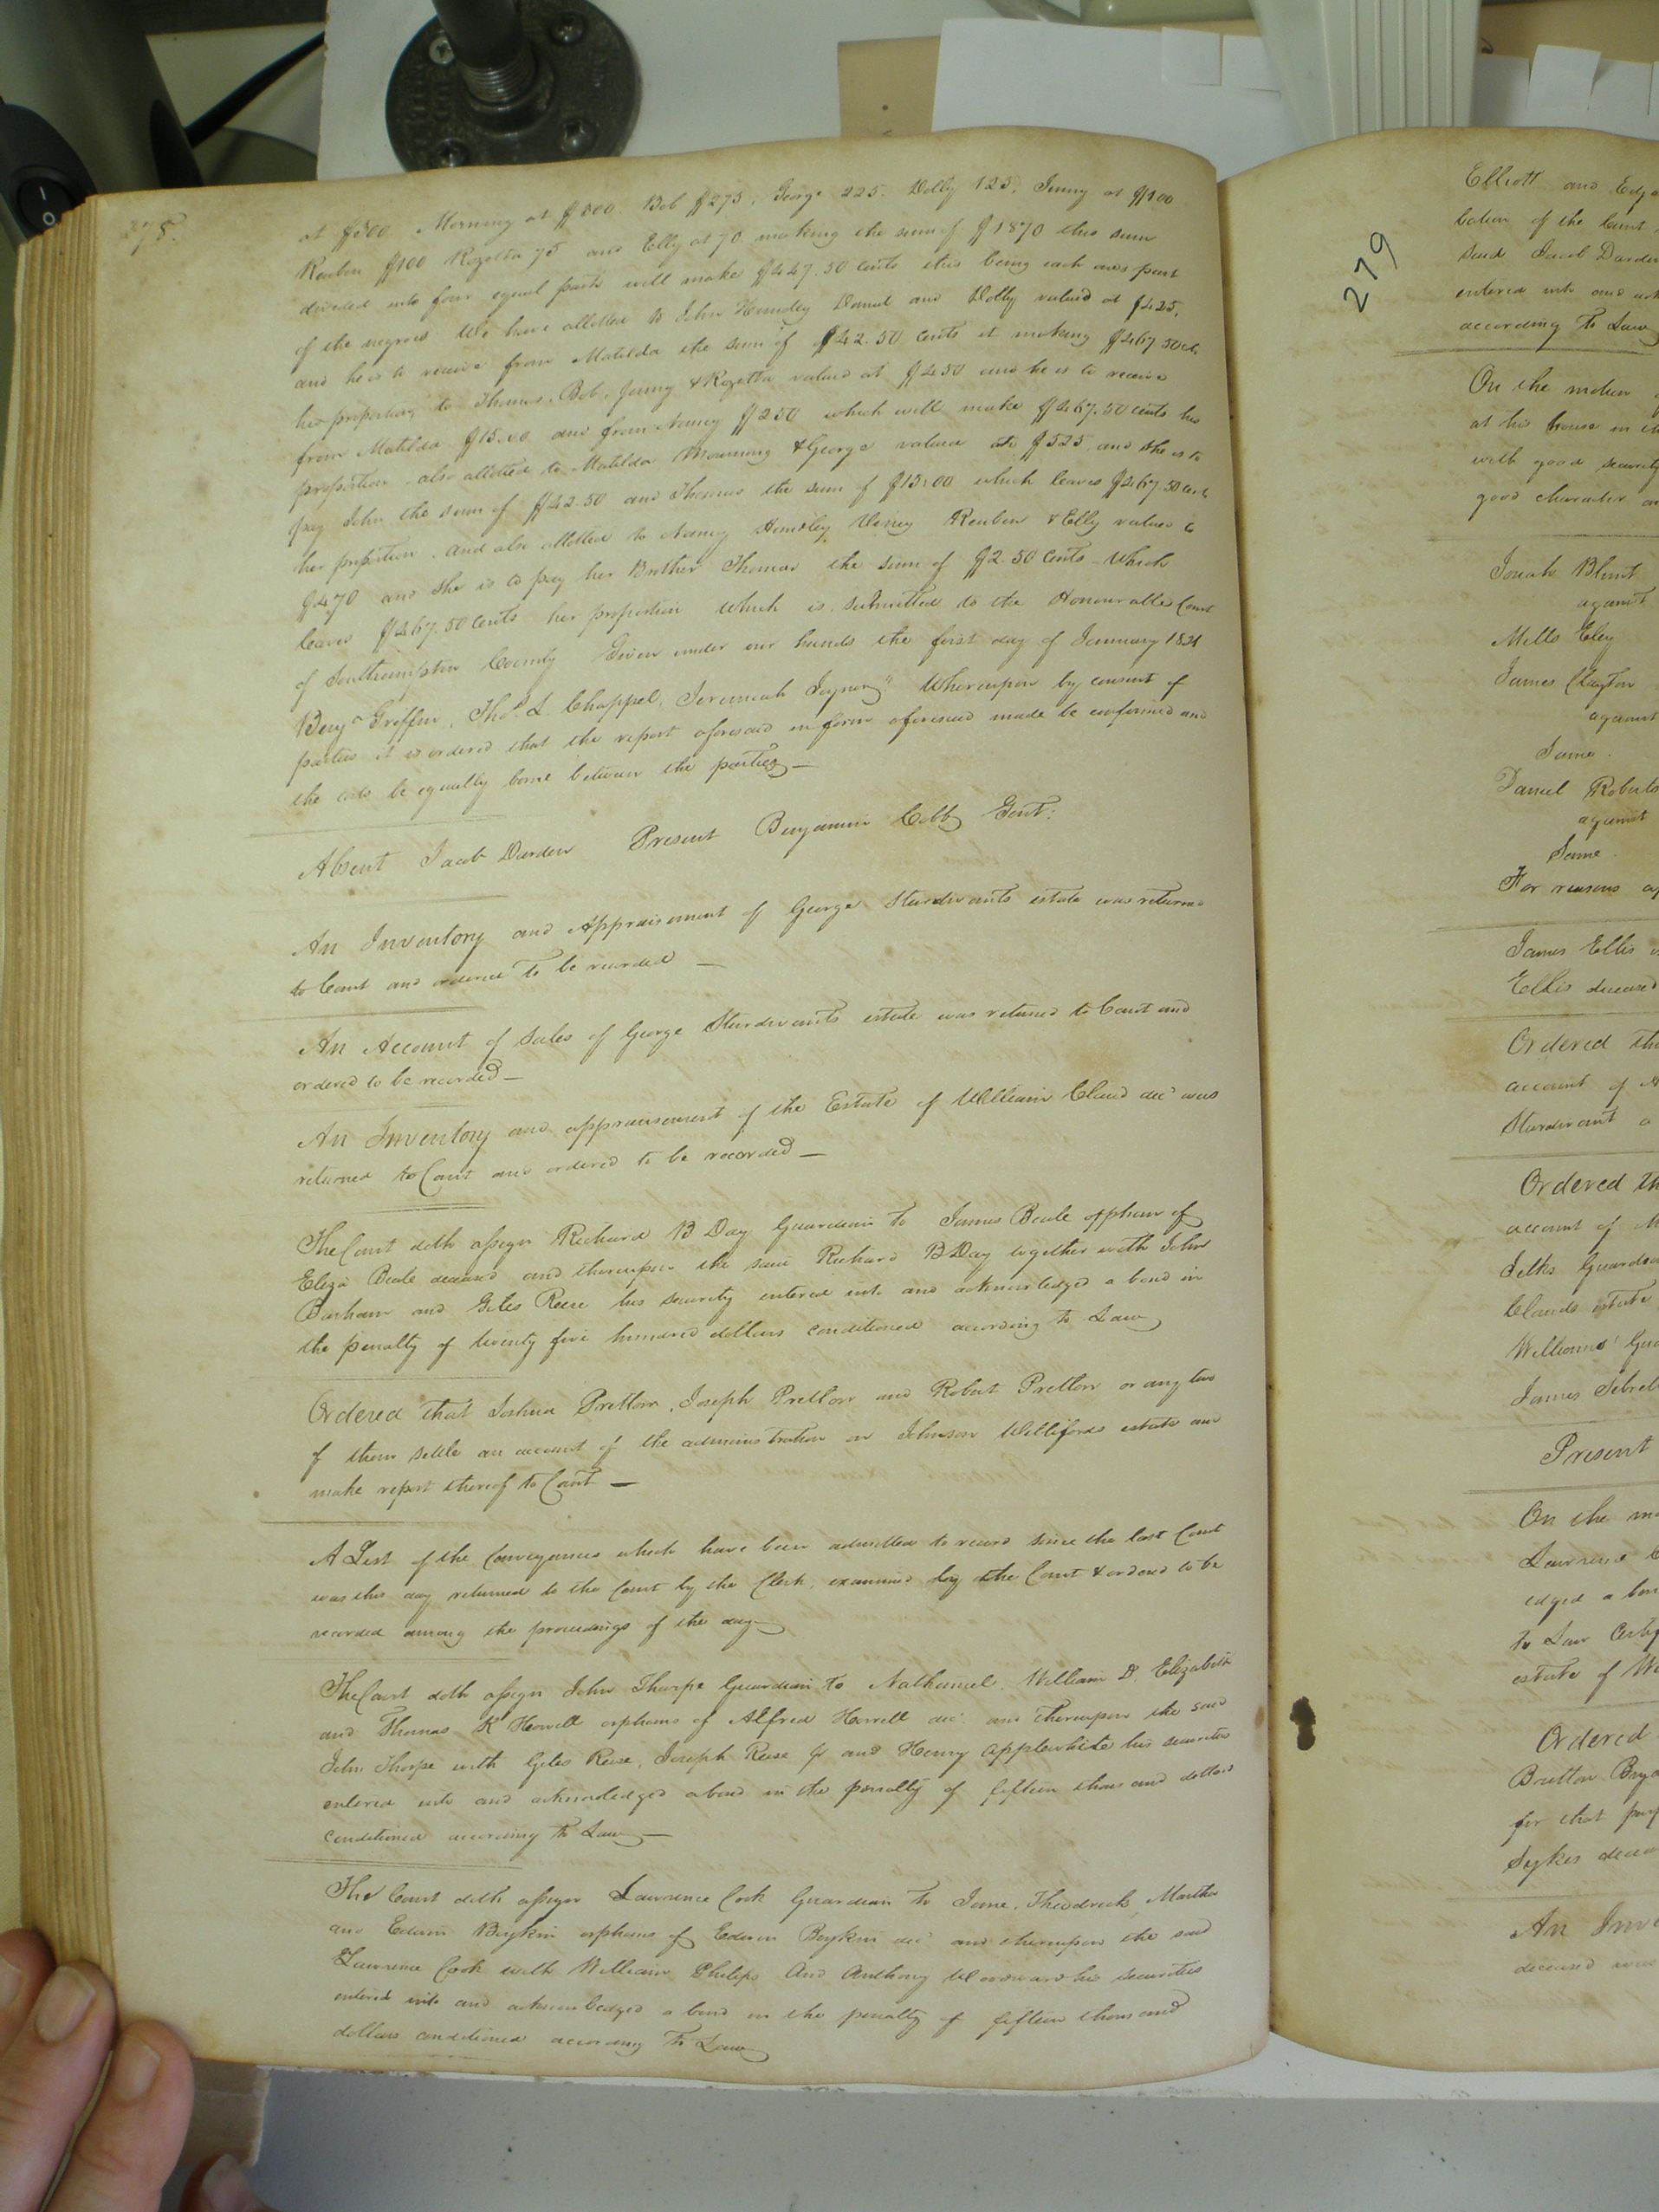 278.
at $300 Morning at $300. Bob $275, George 225. Dolly 125, Jenny at $100
Reuben $100 Rozetta 75 and Elly at 70. making the sum of $1870 this sum
divided into four equal parts will make $447.50 cents this being each ones part
of the negroes We have allotted to John Hundley Daniel and Dolly valued at $425,
and he is to receive from Matilda the sum of $42.50 cents it making $467.50 cts
his proportion, to Thomas, Bob, Jenny & Rozetta valued at $450 and he is to receive
from Matilda $15.00 and from Nancy $250 which will make $467.50 cents his
proportion. also allotted to Matilda Mourning & George valued at $525 and she is to
pay John the sum of $42.50 and Thomas the sum of $15.00 which leaves $467.50 cents
her proportion. and also allotted to Nancy Hundley Viney Reuben & Elly valued to
$470 and she is to pay her Brother Thomas the sum of $2.50 cents - which
leaves $467.50 cents her proportion which is submitted to the Honourable Court
of Southampton County Given under our hands the first day of January 1821
Benja Griffin, Thos. L. Chappel, Jeremiah Joyner," Whereupon by consent of
parties it is ordered that the report aforesaid in form aforesaid made be confirmed and
the costs be equally borne between the parties—
Absent Jacob Darden Present Benjamin Cobb Gent:
An Inventory and Appraisement of George Sturdivants estate was returned
to Court and ordered To be recorded —
An Account of Sales of George Sturdivants estate was returned to Court and
ordered to be recorded—
An Inventory and appraisement of the Estate of William Claud decd was
returned to Court and ordered to be recorded—
The Court doth assign Richard B Day Guardian to James Beale orphan of
Eliza Beale deceased and thereupon the said Richard B Day together with John
Barham and Giles Reese his security entered into and acknowledged a bond in
the penalty of twenty five hundred dollars conditioned according to Law
Ordered that Joshua Pretlow, Joseph Pretlow and Robert Pretlow or any two
of them settle an account of the administration on Johnson Willifords estate and
make report thereof to Court —
A List of the Conveyances which have been admitted to record since the last Court
was this day returned to the Court by the Clerk, examined by the Court & ordered to be
recorded among the proceedings of the day—
The Court doth assign John Thorpe Guardian to Nathaniel, William D. Elizabeth
and Thomas K Howell orphans of Alfred Howell decd. and Thereupon the said
John Thorpe with Giles Reese, Joseph Reese Jr and Henry Applewhite his securities
entered into and acknowledged a bond in the penalty of fifteen thousand dollars
conditioned according to Law—
The Court doth assign Lawrence Cook Guardian to Jane, Theodrick, Martha
and Edwin Boykin orphans of Edwin Boykin decd and thereupon the said
Lawrence Cook with William Philips And Anthony Woodward his securities
entered into and acknowledged a bond in the penalty of fifteen thousand
dollars conditioned according To Law
279
Elliott and
of the Court
said Jacob Darden
entered into and
according To Law
On the motion
at his house in
with good security
good character
Josiah Blunt
against
Mills Eley
James Clayton
against
Same.
Daniel Roberts
against
Same
For reasons
James Ellis
Ellis deceased
Ordered
account of
Sturdivant
Ordered
account of
Guardian
Clauds estate
Williams'
James
Present
On the
Lawrence
a
to Law
estate of
Ordered
Britton
for that
Sykes
An
deceased was